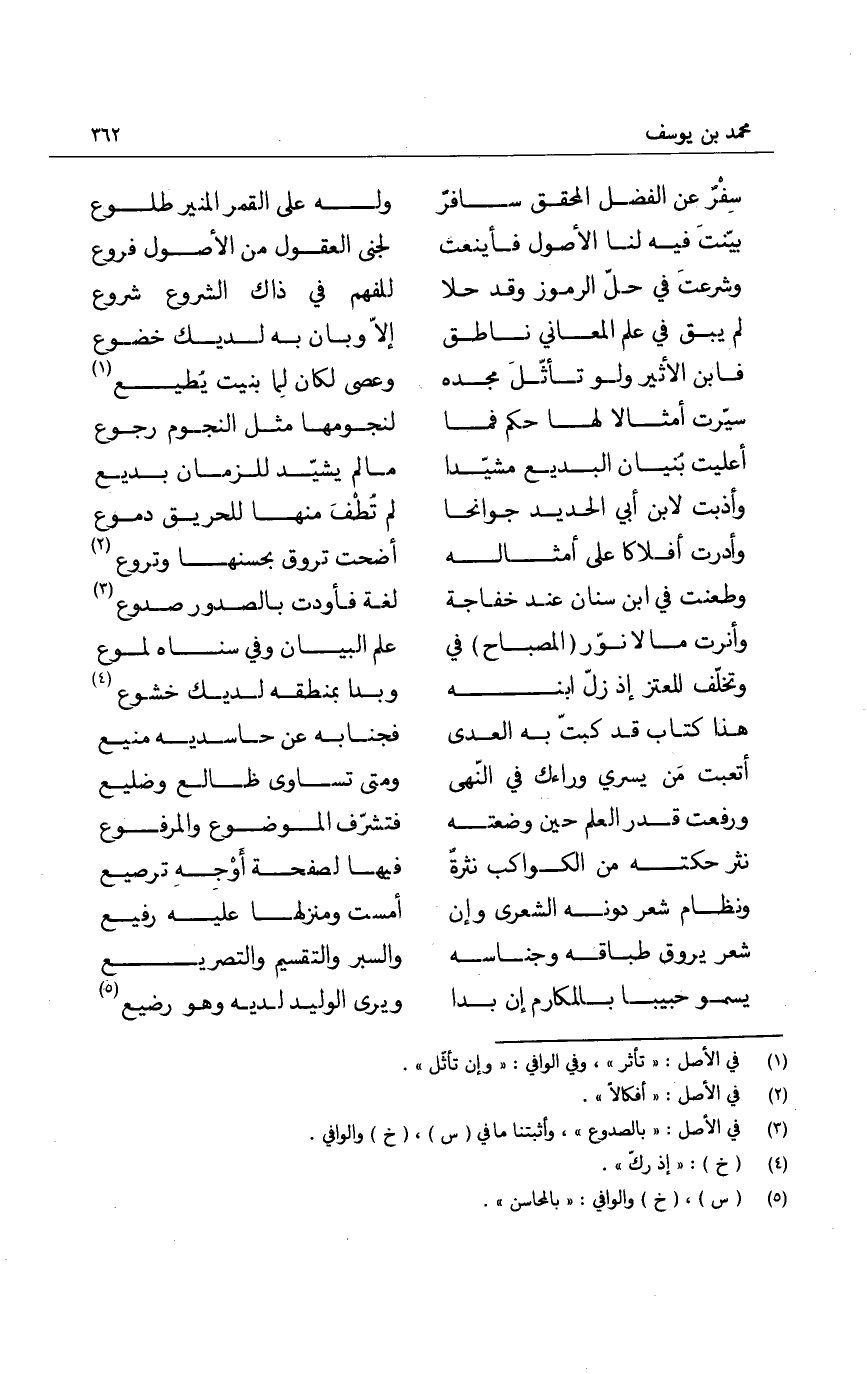 محمد بن يوسف ٣٦٢
سِفْرٌ عن الفضل المحقق سافرٌ وله على القمر المنير طلوع
بيّنتَ فيه لنا الأصول فأينعت لجنى العقول من الأصول فروع
وشرعتَ في حلّ الرموز وقد حلا للفهم في ذاك الشروع شروع
لم يبق في علم المعاني ناطق إلاّ وبان به لديك خضوع
فابن الأثير ولو تأثّلَ مجده وعصى لكان لِما بنيت يُطيع (١)
سيّرت أمثالا لها حكم فما لنجومها مثل النجوم رجوع
أعليت بُنيان البديع مشيّدا مالم يشيّد للزمان بديع
وأذبت لابن أبي الحديد جوانحا لم تُطْفَ منها للحريق دموع
وأدرت أفلاكا على أمثاله أضحت تروق بحسنها وتروع (٢)
وطعنت في ابن سنان عند خفاجة لغة فأودت بالصدور صدوع (٣)
وأنرت مالا نوّر (المصباح) في علم البيان وفي سناه لموع
وتخلّف للعتز إذ زلّ ابنه وبدا بمنطقه لديك خشوع (٤)
هذا كتاب قد كبتّ به العدى فجنابه عن حاسديه منيع
أتعبت مَن يسري وراءك في النّهى ومتى تساوى ظالع وضليع
ورفعت قدر العلم حين وضعته فتشرّف الموضوع والمرفوع
نثر حكته من الكواكب نثرةٌ فيها لصفحة أَوْجِهِ ترصيع
ونظام شعر دونه الشعرى وإن أمست ومنزلها عليه رفيع
شعر يروق طباقه وجناسه والسبر والتقسيم والتصريع
يسمو حبيبا بالمكارم إن بدا ويرى الوليد لديه وهو رضيع (٥)
(١) في الأصل : « تأثر » ، وفي الوافي : « وإن تأثّل » .
(٢) في الأصل : « أفكالاً » .
(٣) في الأصل : « بالصدوع » ، وأثبتنا مافي ( س ) ، ( خ ) والوافي .
(٤) ( خ ) : « إذ ركّ » .
(٥) ( س ) ، ( خ ) والوافي : « بالمحاسن » .